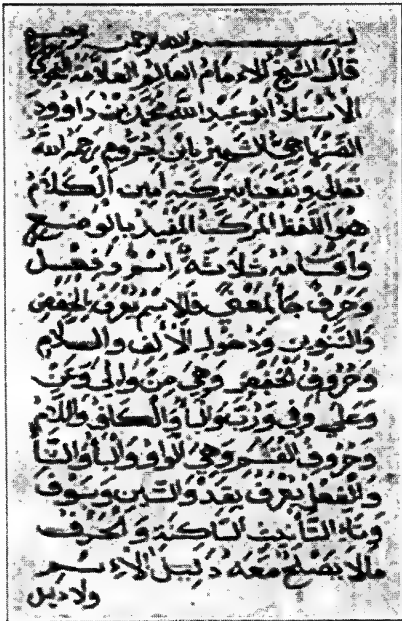 بسم الله الرحمن الرحيم
قال الشيخ الامام العالم العلامة النحوي
الاستاذ ابو عبد الله محمد بن داوود
الصنهاجي الشهير بابن اجروم رحمه الله
تعالى ونفعنا ببركته امين الكلام
هو اللفظ المركب المفيد بالوضع
واقسامه ثلاثة اسم وفعل
وحرف جا لمعنى فالاسم يعرف بالخفض
والتنوين ودخول الالف والسلام
وحروف الخفض وهي من والى وعن
وعلى وفي ورب والبا والكاف واللام
وحروف القسم وهي الواو والبا والتا
والفعل يعرف بقد والسين وسوف
وتاء التانيث الساكنة والحرف
مالا يصلح معه دليل الاسم
ولا دليل